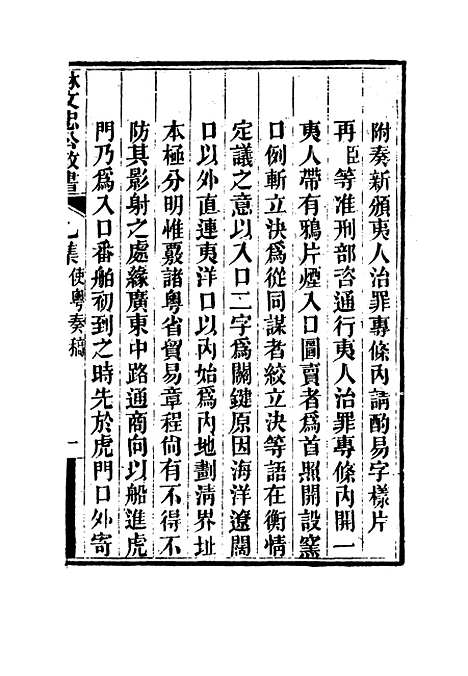 附奏新頒夷人治罪專條內請酌易字樣片
再臣等准刑部咨通行夷人治罪專條內開一
夷人帶有鴉片煙入口圖賣者爲首照開設窰
口例斬立決爲從同謀者絞立決等語在衡情
定議之意以入口二字爲關鍵原因海洋遼闊
口以外直連夷洋口以內始爲內地劃清界址
本極分明惟覈諸粵省貿易章程尙有不得不
防其影射之處緣廣東中路通商向以船進虎
門乃爲入口番舶初到之時先於虎門口外寄
林文忠公政書 乙集 使粵奏稿 一